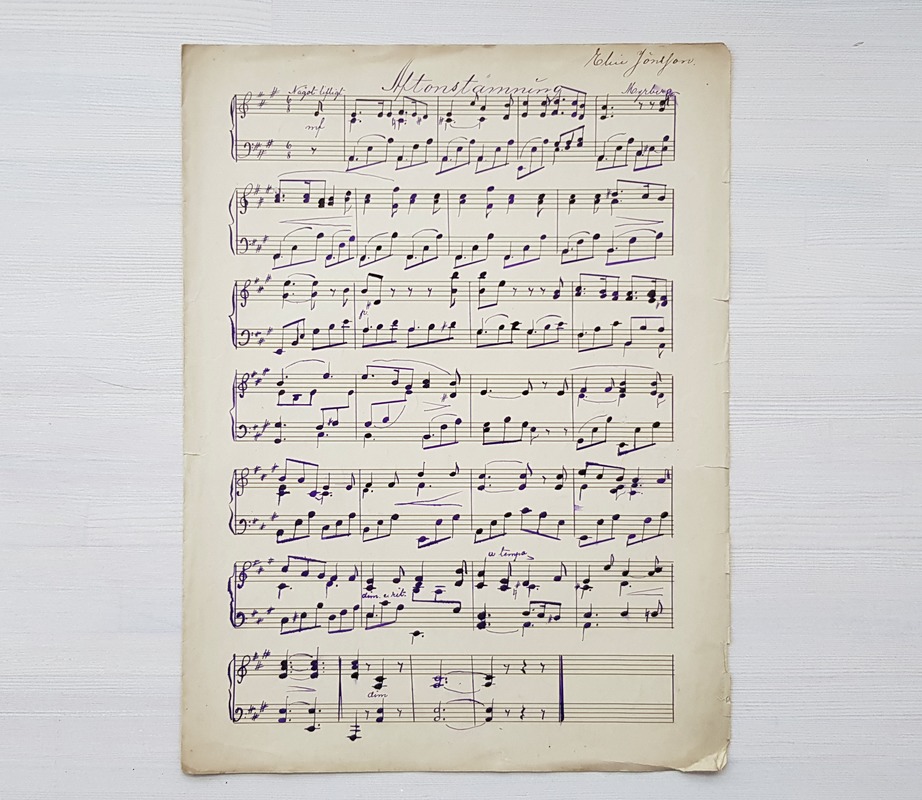 Jönsson.
Aftonstämning
Något lifligt Myrberg
6
8
mf
6
8
p
a tempo
dim. e rit.
dim